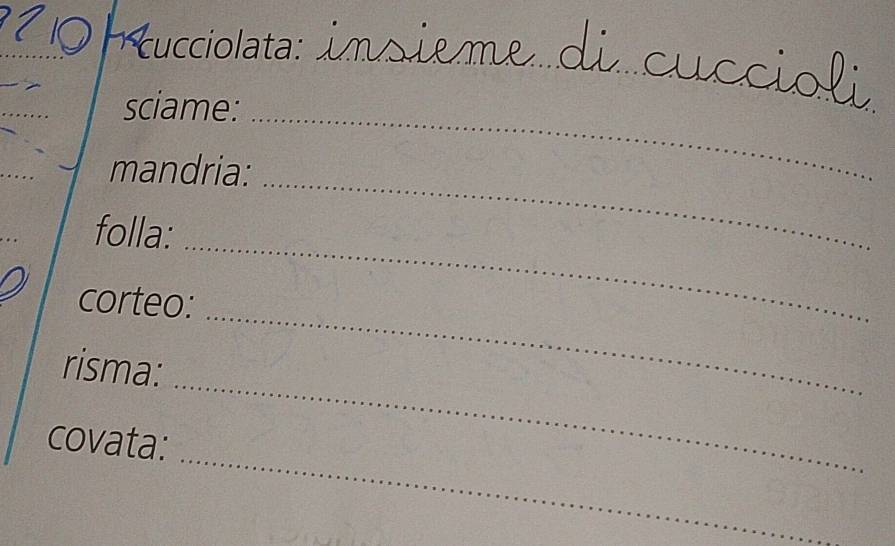 cucciolata: insieme di cuccioli
sciame:
mandria:
folla:
corteo:
risma:
covata: